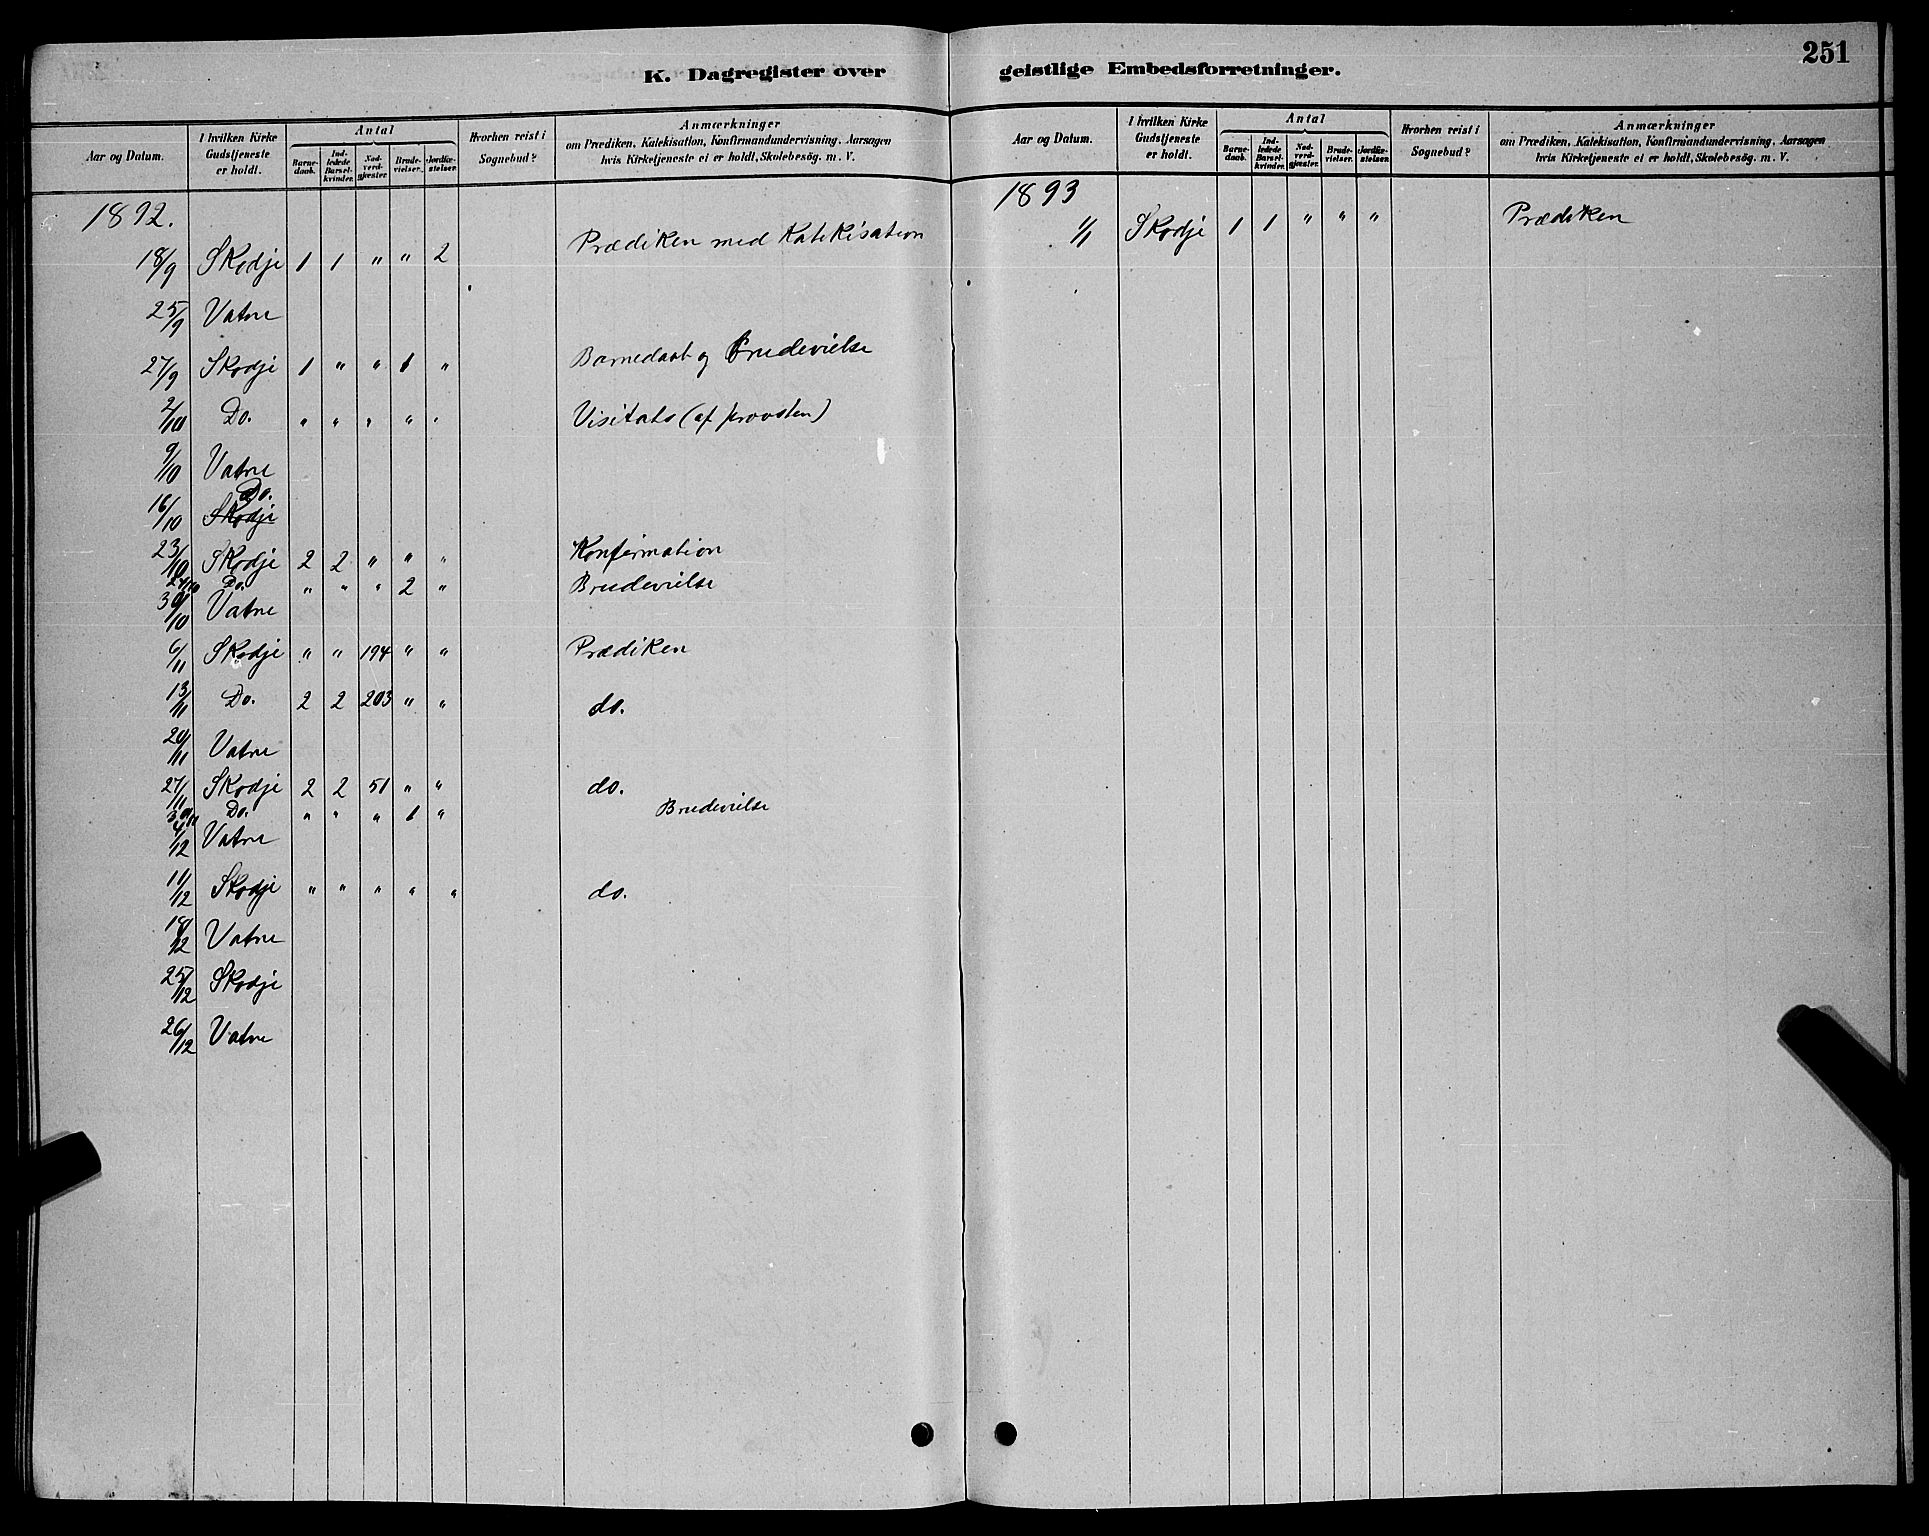 251
K. Dagregister over geistlige Embedsforretninger.
Aar og Datum. I hvilken Kirke Gudstjeneste er holdt. Antal Barnedaab. Indledede Barselkvinder. Nadverdgjæster. Brudevielser. Jordfæstelser. Hvorhen reist i Sognebud? Anmærkninger om Prædiken, Katekisation, Konfirmandundervisning, Aarsagen hvis Kirketjeneste ei er holdt, Skolebesög. m. V.
1892.
18/9 Skodje 1 1 " " 2 Prædiken med Katekisation
25/9 Vatne
27/9 Skodje 1 " " 1 " Barnedaab og Brudevielse
2/10 Do. " " " " " Visitats (af provsten)
9/10 Vatne
16/10 Skodje Do.
23/10 Skodje 2 2 " " " Konfirmation
27/10 Do. " " " 2 " Brudevielse
30/10 Vatne
6/11 Skodje " " 194 " " Prædiken
13/11 Do. 2 2 203 " " do.
20/11 Vatne
27/11 Skodje 2 2 51 " " do.
30/11 Do. " " " 1 " Brudevielse
4/12 Vatne
11/12 Skodje " " " " " do.
18/12 Vatne
25/12 Skodje
26/12 Vatne
Aar og Datum. I hvilken Kirke Gudstjeneste er holdt. Antal Barnedaab. Indledede Barselkvinder. Nadverdgjæster. Brudevielser. Jordfæstelser. Hvorhen reist i Sognebud? Anmærkninger om Prædiken, Katekisation, Konfirmandundervisning, Aarsagen hvis Kirketjeneste ei er holdt, Skolebesög. m. V.
1893
1/1 Skodje 1 1 " " " Prædiken